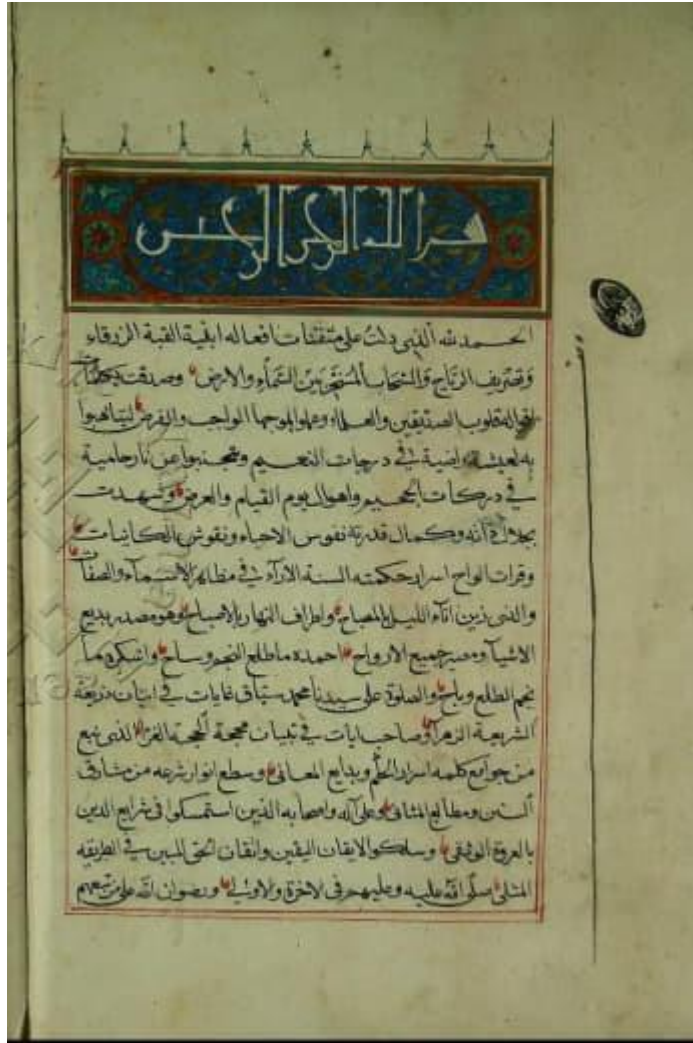 بسم الله الرحمن الرحيم
الحمد لله الذى دلت على متقنات افعاله ابنية القبة الزرقاء
وتصريف الرياح والسحاب المسخر بين السماء والارض وصدقت
قلوب الصديقين والعلماء وعملوا بموجبها الواجب والفرض ليتاهبوا
به لعيشة راضية في درجات النعيم ويجتنبوا عن نار حامية
في دركات الجحيم واهوال يوم القيام والعرض وشهدت
بجلال ذاته وكمال قدرته نفوس الاحياء ونقوش الكائنات
وقرات الواح اسرار حكمته السنة الاراء في مظاهر الاسماء والصفات
والذى زين اناء الليل بالمصباح واطراف النهار بالاصباح وهو مصدر بديع
الاشياء ومصير جميع الارواح احمده ما طلع النجم وساح واشكره ما
نجم الطلع وباح والصلوة على سيدنا محمد سباق غايات في
الشريعة الزهراء وصاحب ايات في تبيان محجة الحجة الغراء الذى نبع
من جوامع كلمه اسرار الحكم وبدايع المعانى وسطع انوار شرعه من مشارق
السنن ومطالع المثانى وعلى آله واصحابه الذين استمسكوا فى شرايع الدين
بالعروة الوثقى وسلكوا لايقان اليقين واتقان الحق المبين في الطريقة
المثلى صلى الله عليه وعليهم فى الاخرة والاولى ورضوان الله على من تبعهم